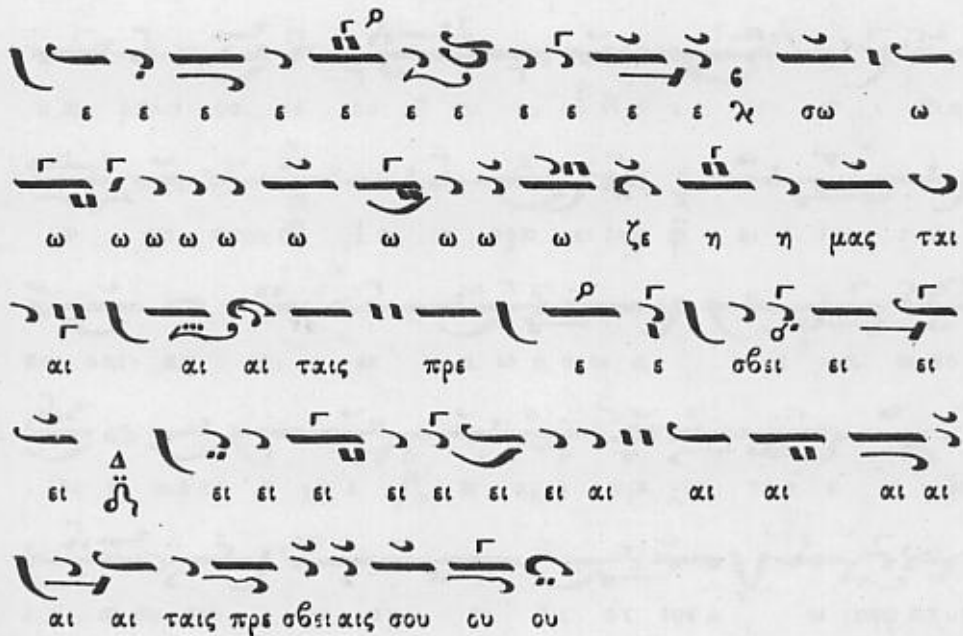 ε ε ε ε ε ε ε ε ε ε ε ϗ σω ω
ω ω ω ω ω ω ω ω ω ω ζε η η μας ται
αι αι αι ταις πρε ε ε σβει ει ει
ει Δ ει ει ει ει ει ει ει αι αι αι αι αι
αι αι ταις πρε σβει αις σου ου ου